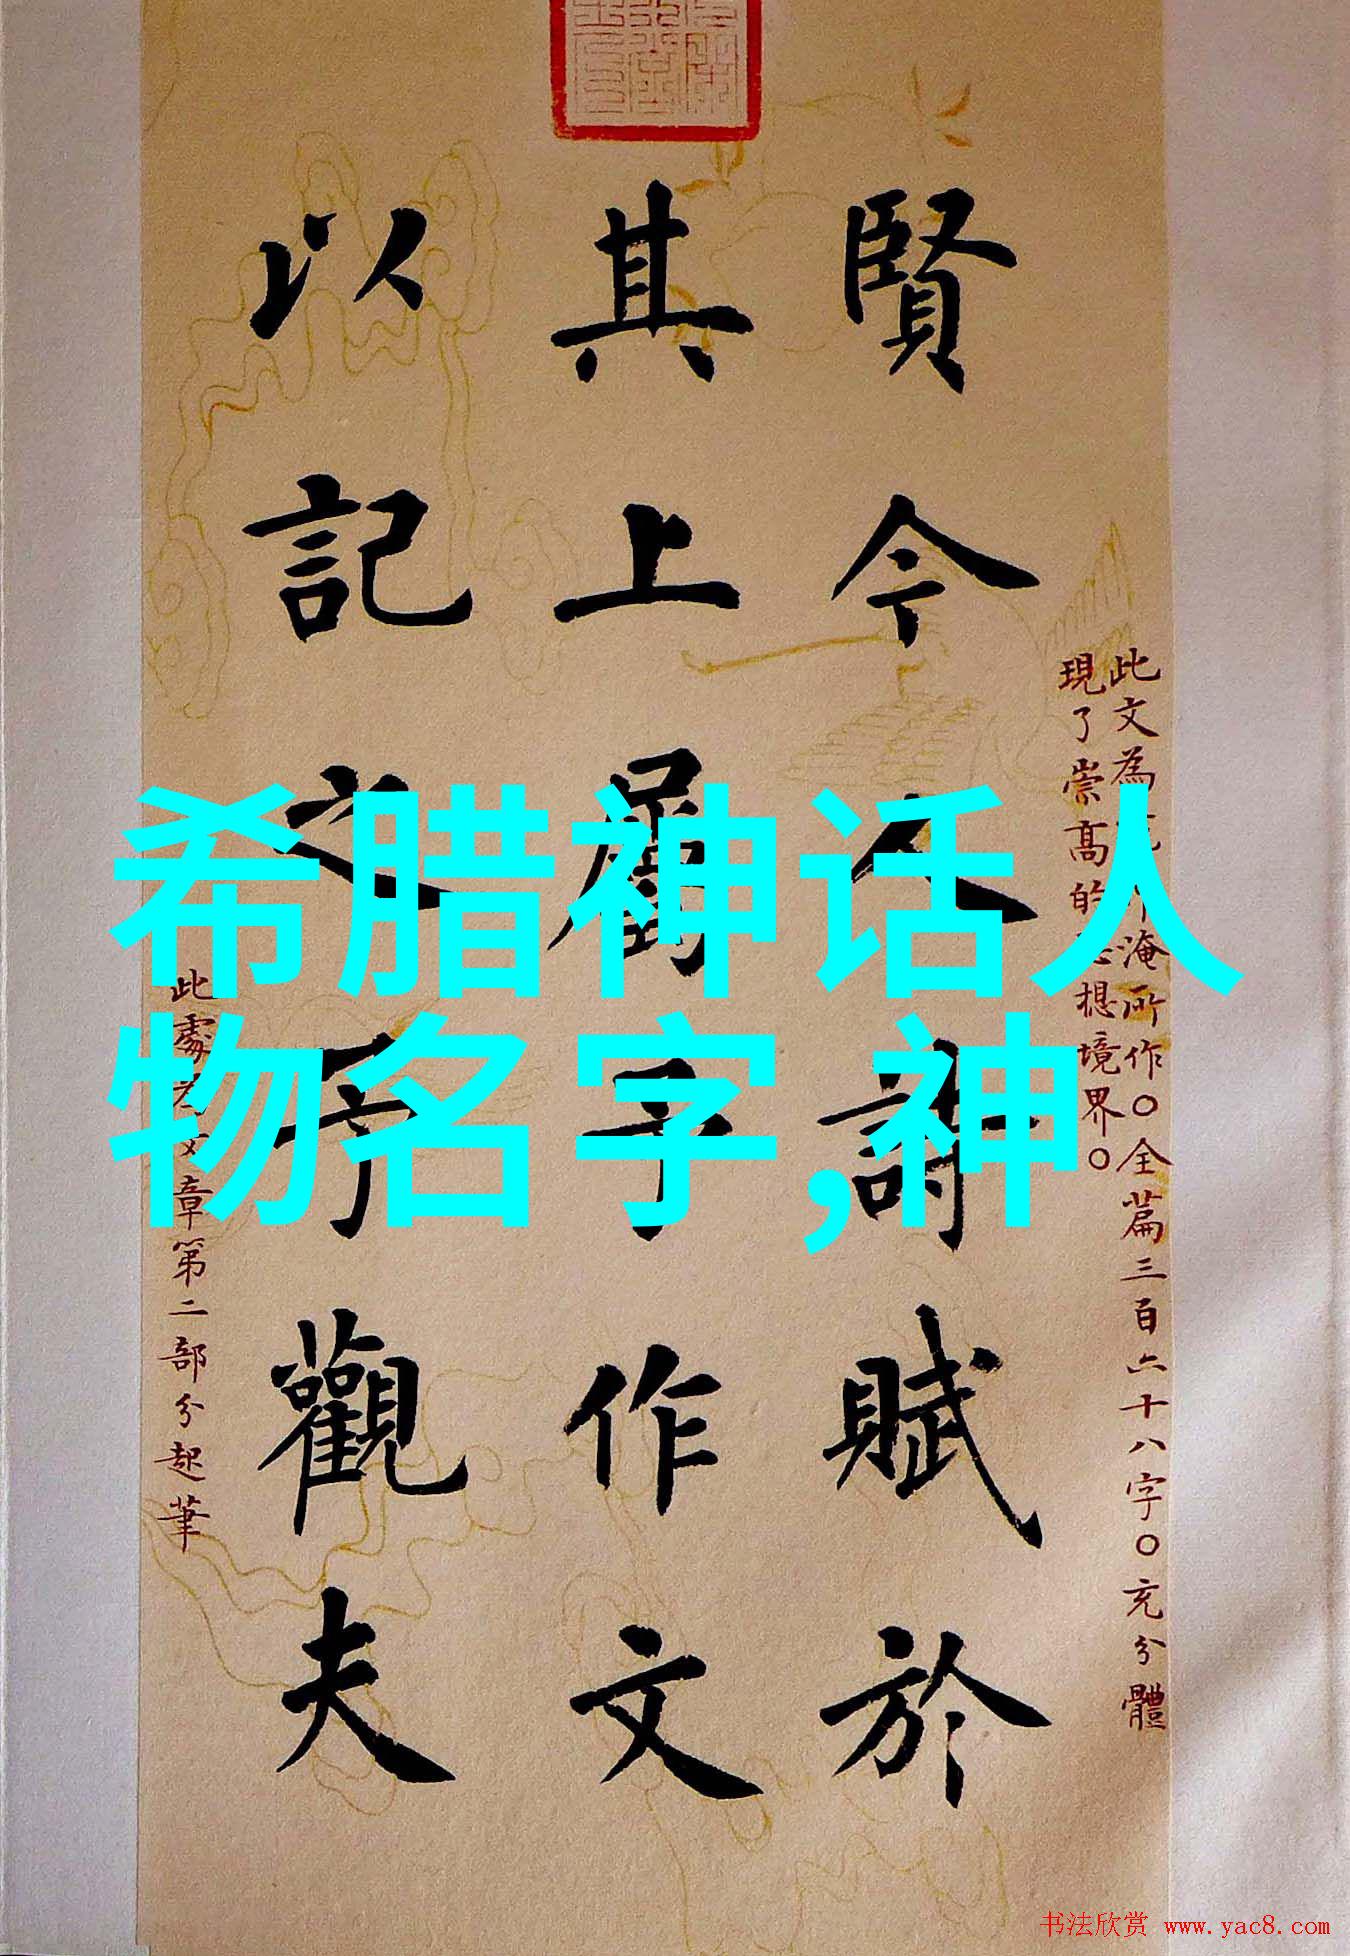 希腊神话人
物名字,神
此文為淹所作〇全篇三百六十八字〇充分體
現了崇高的思想境界〇
賢今人詩賦於
其上屬予作文
以記之予觀夫
此處為文章第二部分起筆
书法欣赏 www.yac8.com